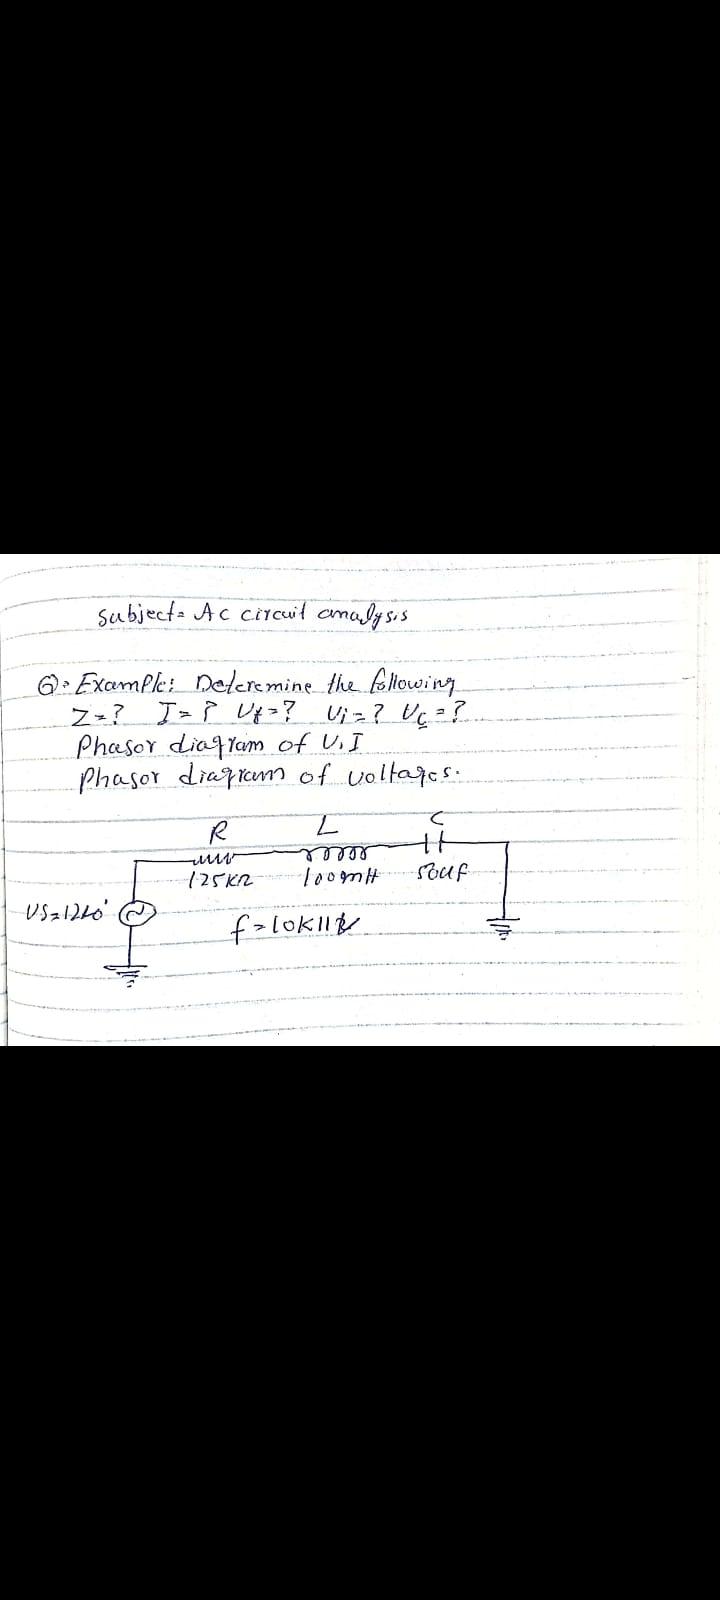 Subject= AC circuit analysis
Q. Example: Deteremine the following
Z=? I=? Vr=? Vi=? Vc=?
Phasor diagram of V,I
Phasor diagram of voltages.
R L C
125KΩ 100mH 50uf
VS=12∠0°